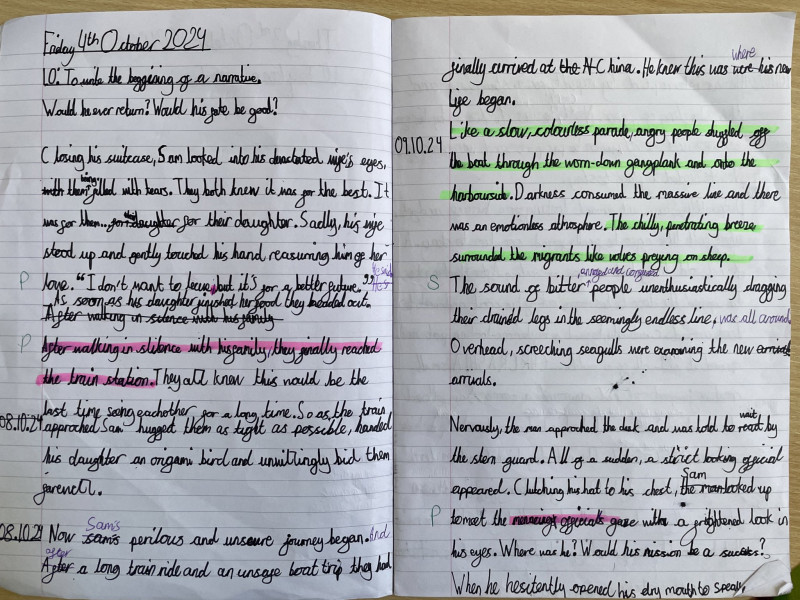 Friday 4th October 2024
LO: To write the beggining of a narrative.
Would he ever return? Would his fate be good?
Closing his suitcase, Sam looked into his devastated wife's eyes,
with them being filled with tears. They both knew it was for the best. It
was for them... for daughter for their daughter. Sadly, his wife
stood up and gently touched his hand reassuring him of her
P love. "I don't want to leave, but it's for a better future."
As soon as his daughter finished her food they headed out.
After walking in silence with his family
P After walking in silence with his family, they finally reached
the train station. They all knew this would be the
last time seing eachother for a long time. So as the train
08.10.24 approched Sam hugged them as tight as possible, handed
his daughter an origami bird and unwillingly bid them
farewell.
08.10.24 Now Sam's perilous and unsecure journey began. And
after After a long train ride and an unsafe boat trip they had
finally arrived at the N.C hina. He knew this was where his new
life began.
09.10.24 Like a slow, colourless parade, angry people shuffled off
the boat through the worn-down gangplank and onto the
harbourside. Darkness consumed the massive line and there
was an emotionless athosphre. The chilly, penetrating breeze
surrounded the migrants like wolves preying on sheep.
S The sound of bitter, annoyed and confused people unenthusiastically dragging
their drained legs in the seemingly endless line, was all around
Overhead, screeching seagulls were examining the new
arrivals.
Nervously, the man approched the desk and was told to wait by
the stern guard. All of a sudden, a strict looking official
appeared. Clutching his hat to his chest, Sam the man looked up
P to meet the menacing officials gaze with a frightened look in
his eyes. Where was he? Would his mission be a sucess?
When he hesitently opened his dry mouth to speak,